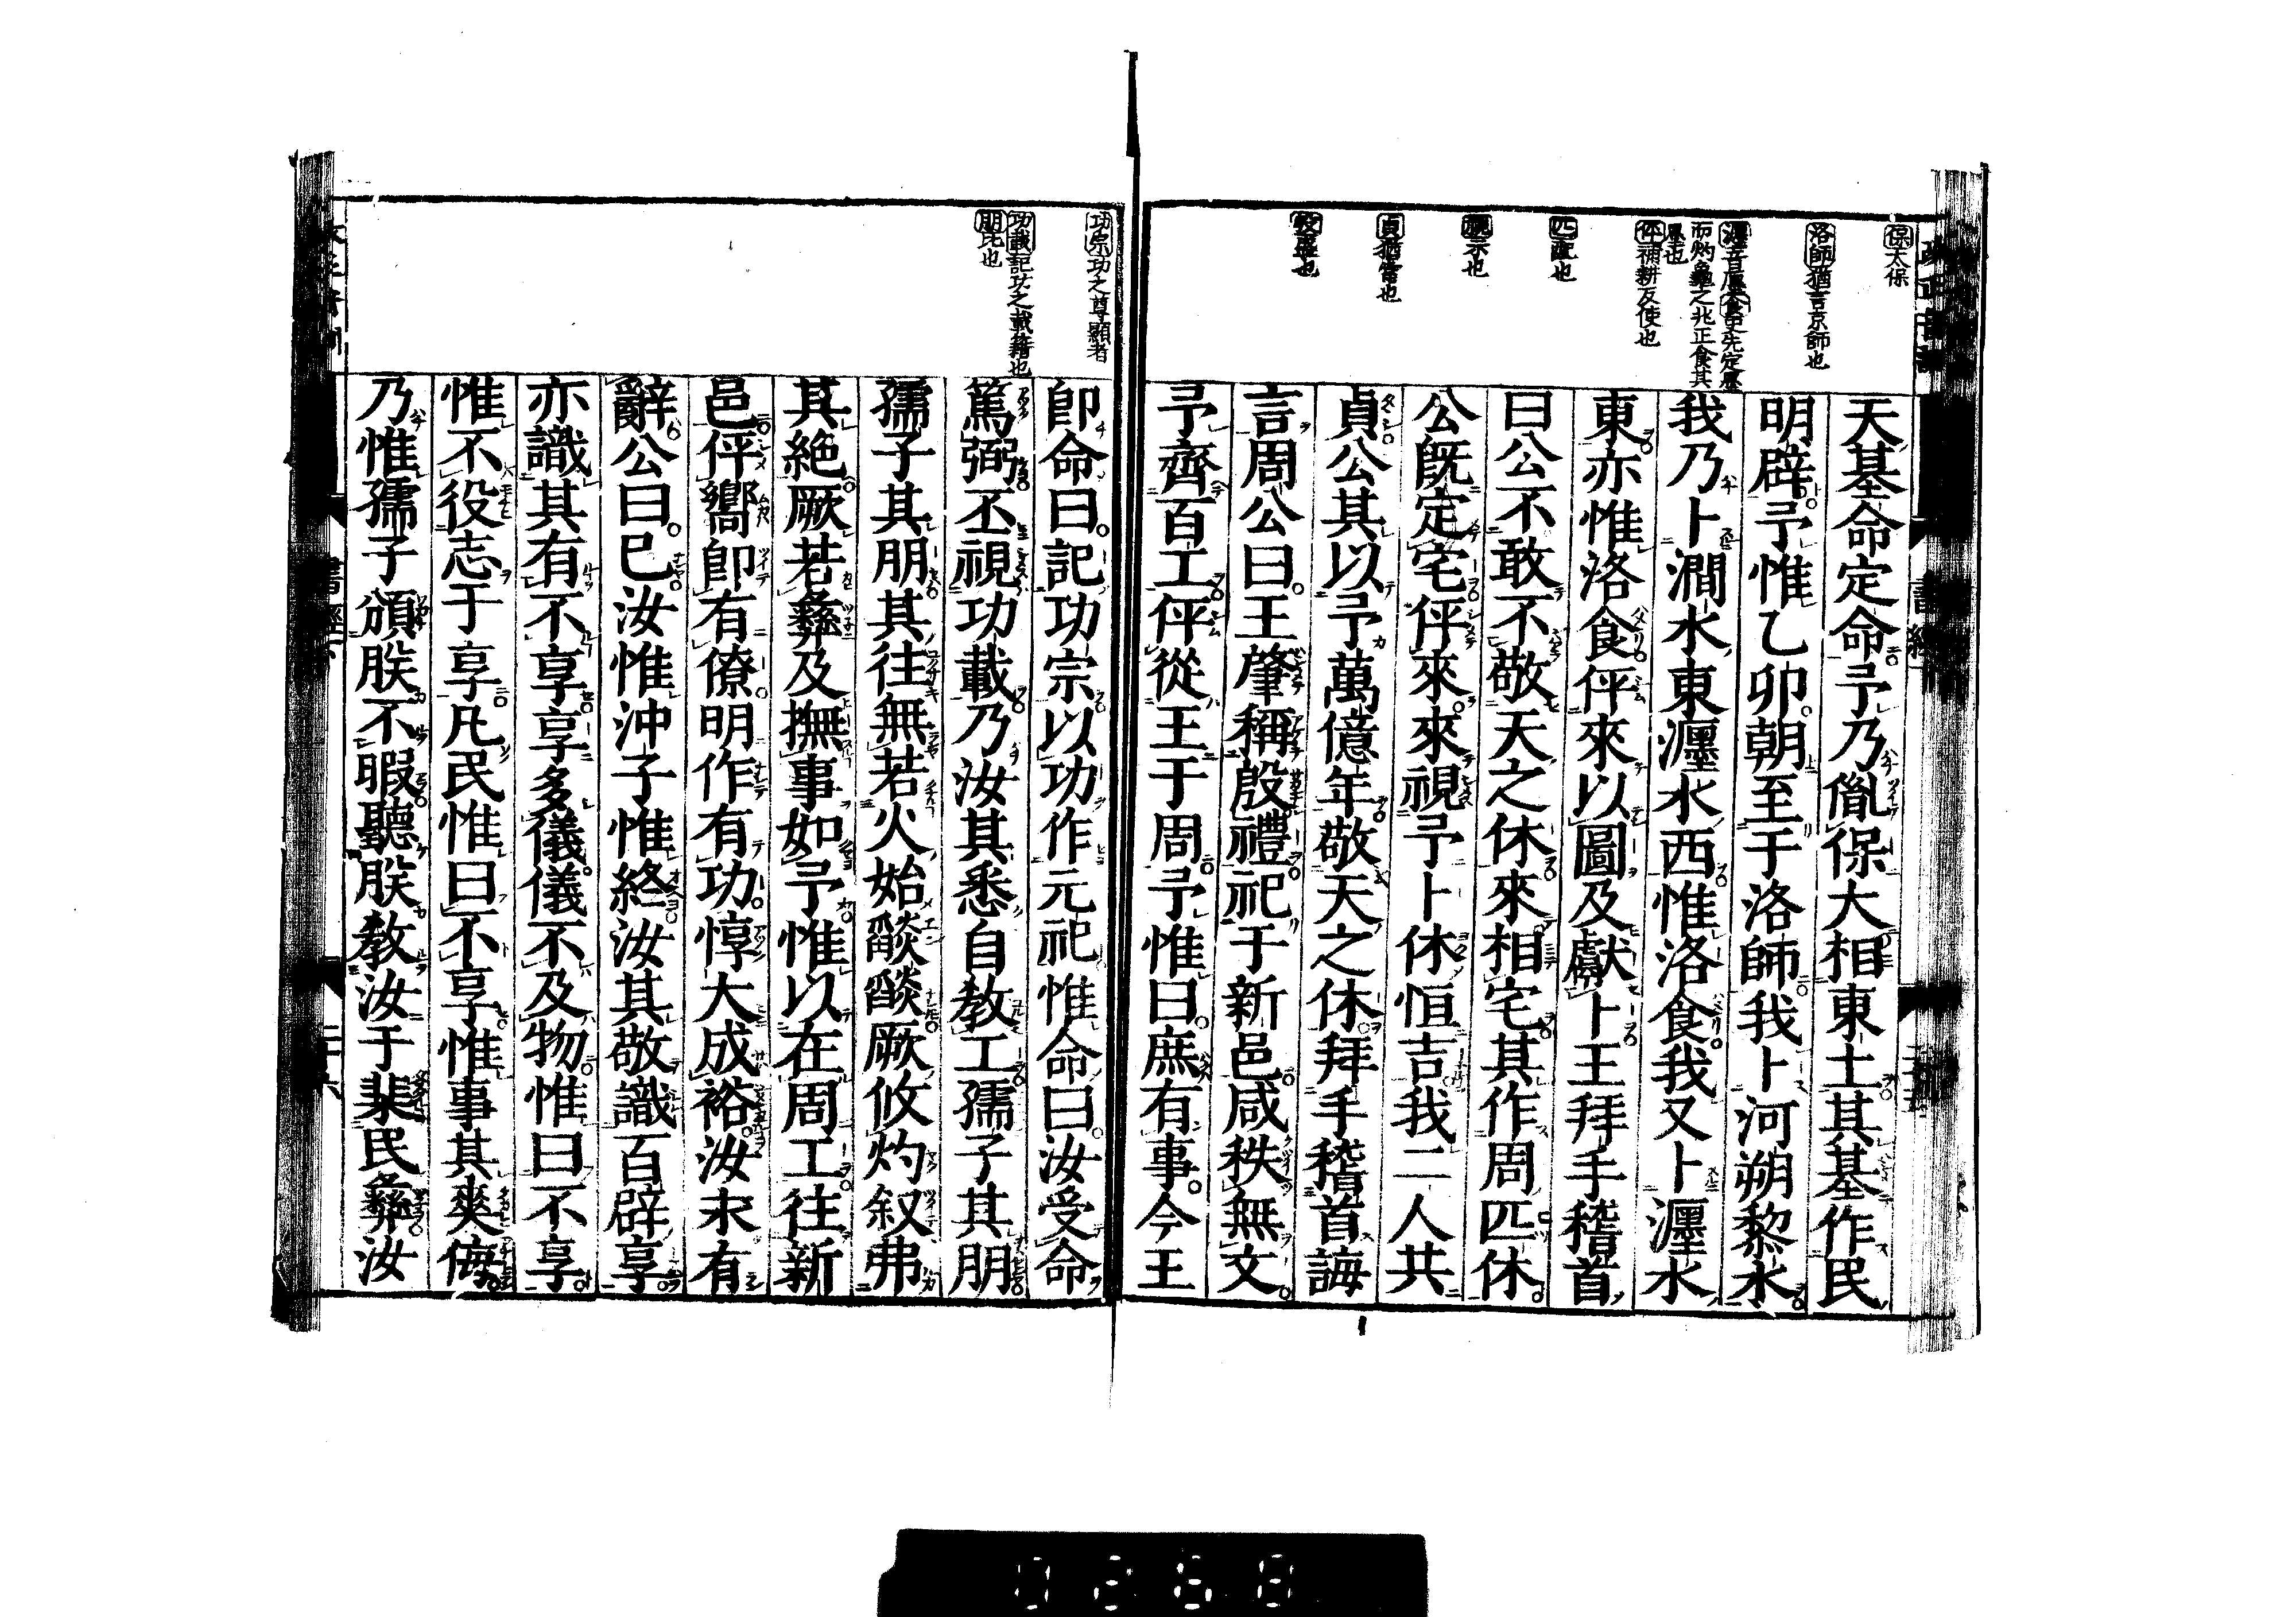 保太保
洛師猶言京師也
瀍音廛食史先定墨
而灼龜之兆正食其
墨也
伻補耕反使也
匹配也
視示也
貞猶當也
天基命定命予乃胤保大相東土其基作民
明辟予惟乙卯朝至于洛師我卜河朔黎水
我乃卜澗水東瀍水西惟洛食我又卜瀍水
東亦惟洛食伻來以圖及獻卜王拜手稽首
曰公不敢不敬天之休來相宅其作周匹休
公既定宅伻來來視予卜休恒吉我二人共
貞公其以予萬億年敬天之休拜手稽首誨
言周公曰王肇稱殷禮祀于新邑咸秩無文
予齊百工伻從王于周予惟曰庶有事今王
功宗功之尊顯者
功載記功之載籍也
朋比也
卽命曰記功宗以功作元祀惟命曰汝受命
篤弼丕視功載乃汝其悉自敎工孺子其朋
孺子其朋其往無若火始燄燄厥攸灼叙弗
其絶厥若彝及撫事如予惟以在周工往新
邑伻嚮卽有僚明作有功惇大成裕汝永有
辭公曰已汝惟沖子惟終汝其敬識百辟享
亦識其有不享享多儀儀不及物惟曰不享
惟不役志于享凡民惟曰不享惟事其爽侮
乃惟孺子頒朕不暇聽朕敎汝于棐民彝汝
書經下
二十六